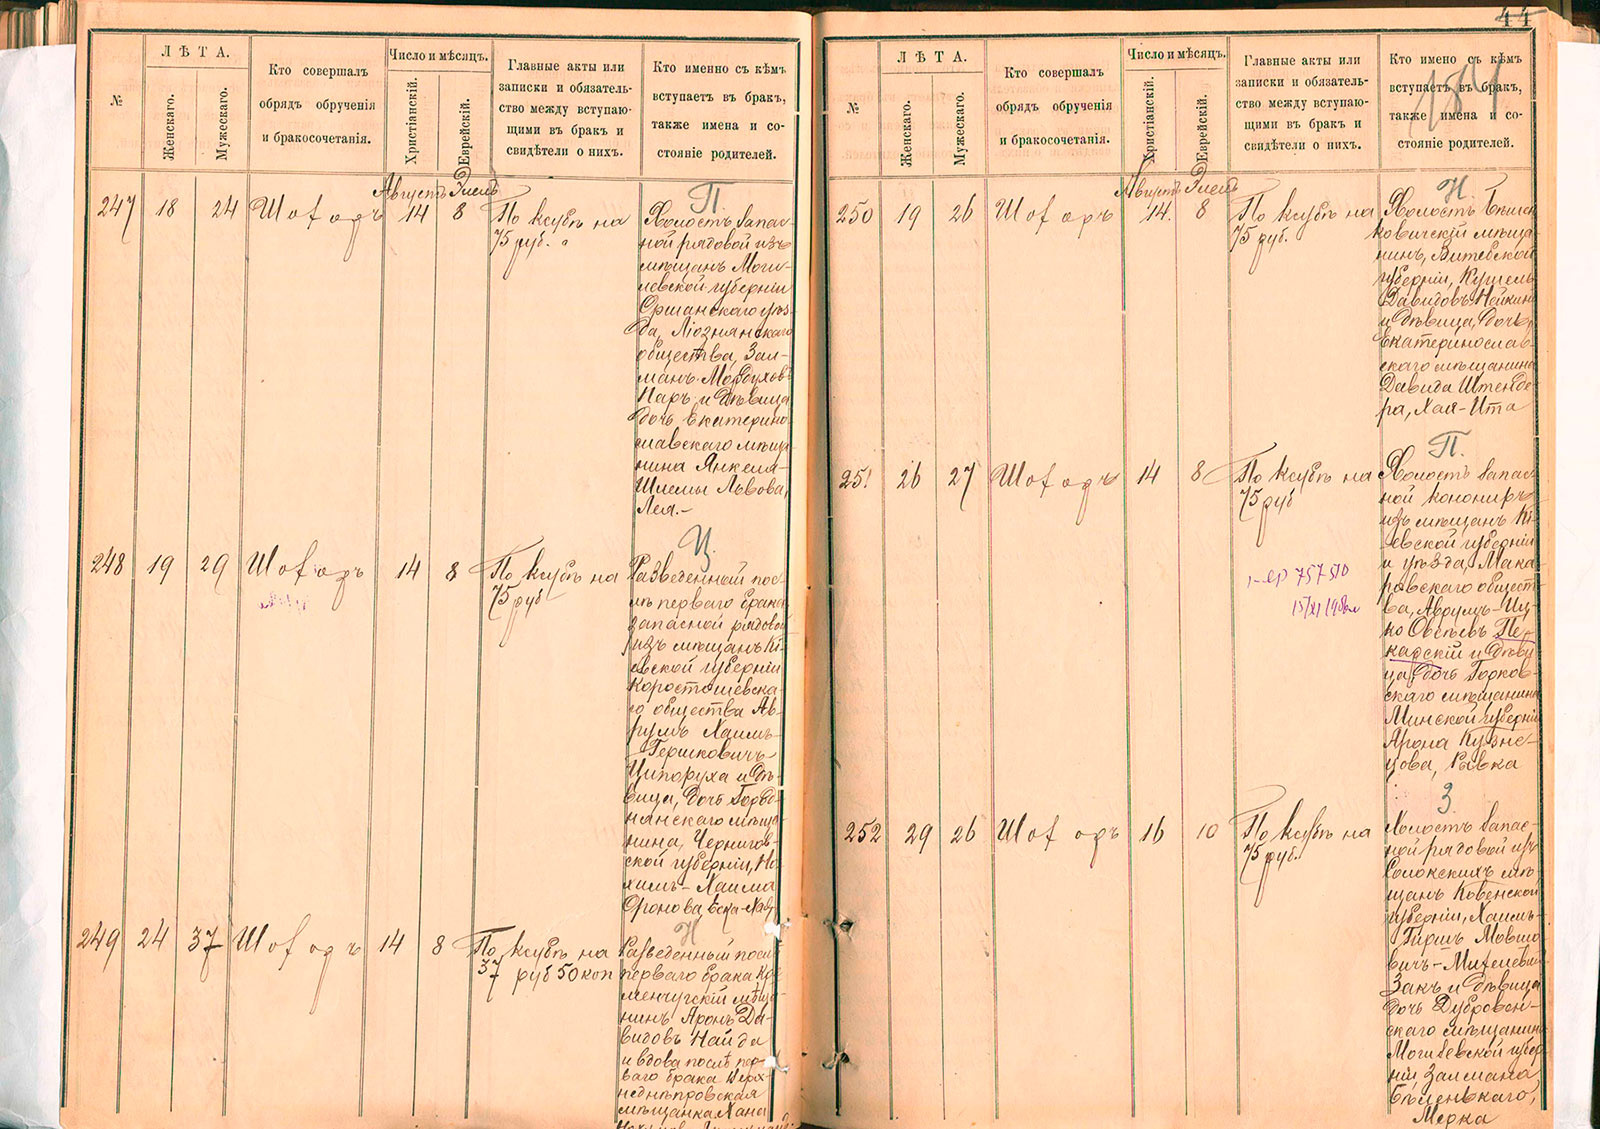 44
184
ЛѢТА.
Число и мѣсяцъ.
№
Женскаго.
Мужескаго.
Кто совершалъ
обрядъ обрученія
и бракосочетанія.
Христіанскій.
Еврейскій.
Главные акты или
записки и обязатель-
ство между вступаю-
щими въ бракъ и
свидѣтели о нихъ.
Кто именно съ кѣмъ
вступаетъ въ бракъ,
также имена и со-
стояніе родителей.
Августъ Элелъ
247 18 24 Шофоръ 14 8
По ксубѣ на
75 руб.
П.
Холостъ запас-
ной рядовой изъ
мѣщанъ Моги-
левской губерніи
Оршанскаго уѣз-
да, Ліознянскаго
общества, Зал-
манъ Мордуховъ
Паръ и дѣвица
дочь Екатерино-
славскаго мѣща-
нина Янкеля-
Шлемы Львова,
Лея.-
248 19 29 Шофоръ 14 8
По ксубѣ на
75 руб
Ц.
Разведенный пос-
лѣ перваго брака
запасной рядовой
изъ мѣщанъ Кі-
евской губерніи
Коростышевска-
го общества Ав-
румъ Хаимъ-
Гершковичъ-
Ципоруха и дѣ-
вица, дочь Городо-
нянскаго мѣща-
нина, Чернигов-
ской губерніи, Но-
химъ-Хаима
Оронова,
249 24 37 Шофоръ 14 8
По ксубѣ на
37 руб 50 коп
Н
Разведенный послѣ
перваго брака Кре-
менчугскій мѣща-
нинъ Аронъ Да-
видовъ Найда
и вдова послѣ пер-
ваго брака Верх-
неднѣпровская
мѣщанка Хана
ЛѢТА.
Число и мѣсяцъ.
№
Женскаго.
Мужескаго.
Кто совершалъ
обрядъ обрученія
и бракосочетанія.
Христіанскій.
Еврейскій.
Главные акты или
записки и обязатель-
ство между вступаю-
щими въ бракъ и
свидѣтели о нихъ.
Кто имено съ кѣмъ
вступаетъ въ бракъ,
также имена и со-
стояніе родителей.
Августъ Элелъ
250 19 26 Шофоръ 14. 8
По ксубѣ на
75 руб.
Н.
Холостъ Бѣшен-
ковичскій мѣща-
нинъ, Витебской
губерніи, Кушель
Давидовъ Нейкинъ
и дѣвица, дочь
Екатеринослав-
скаго мѣщанина
Давида Штенде-
ра, Хая-Ита
251 26 27 Шофоръ 14 8
По ксубѣ на
75 руб
757510
П.
Холостъ запас-
ной канониръ
изъ мѣщанъ Кі-
евской губерніи
и уѣзда, Мака-
ровскаго общест-
ва, Аврумъ-Иц-
ко Овсѣевъ Пе-
карскій и дѣви-
ца, дочь Горков-
скаго мѣщанина
Минской губерніи
Арона Кузне-
цова, Ривка
252 29 26 Шофоръ 16 10
По ксубѣ на
75 руб.
З.
Холостъ запас-
ной рядовой изъ
Солокскихъ мѣ-
щанъ Ковенской
губерніи, Хаимъ-
Гиршъ Мовшо-
вичъ-
Закъ и дѣвица
дочь Дубровен-
скаго мѣщанина
Могилевской губер-
ніи, Залмана
Бѣленькаго,
Мерка